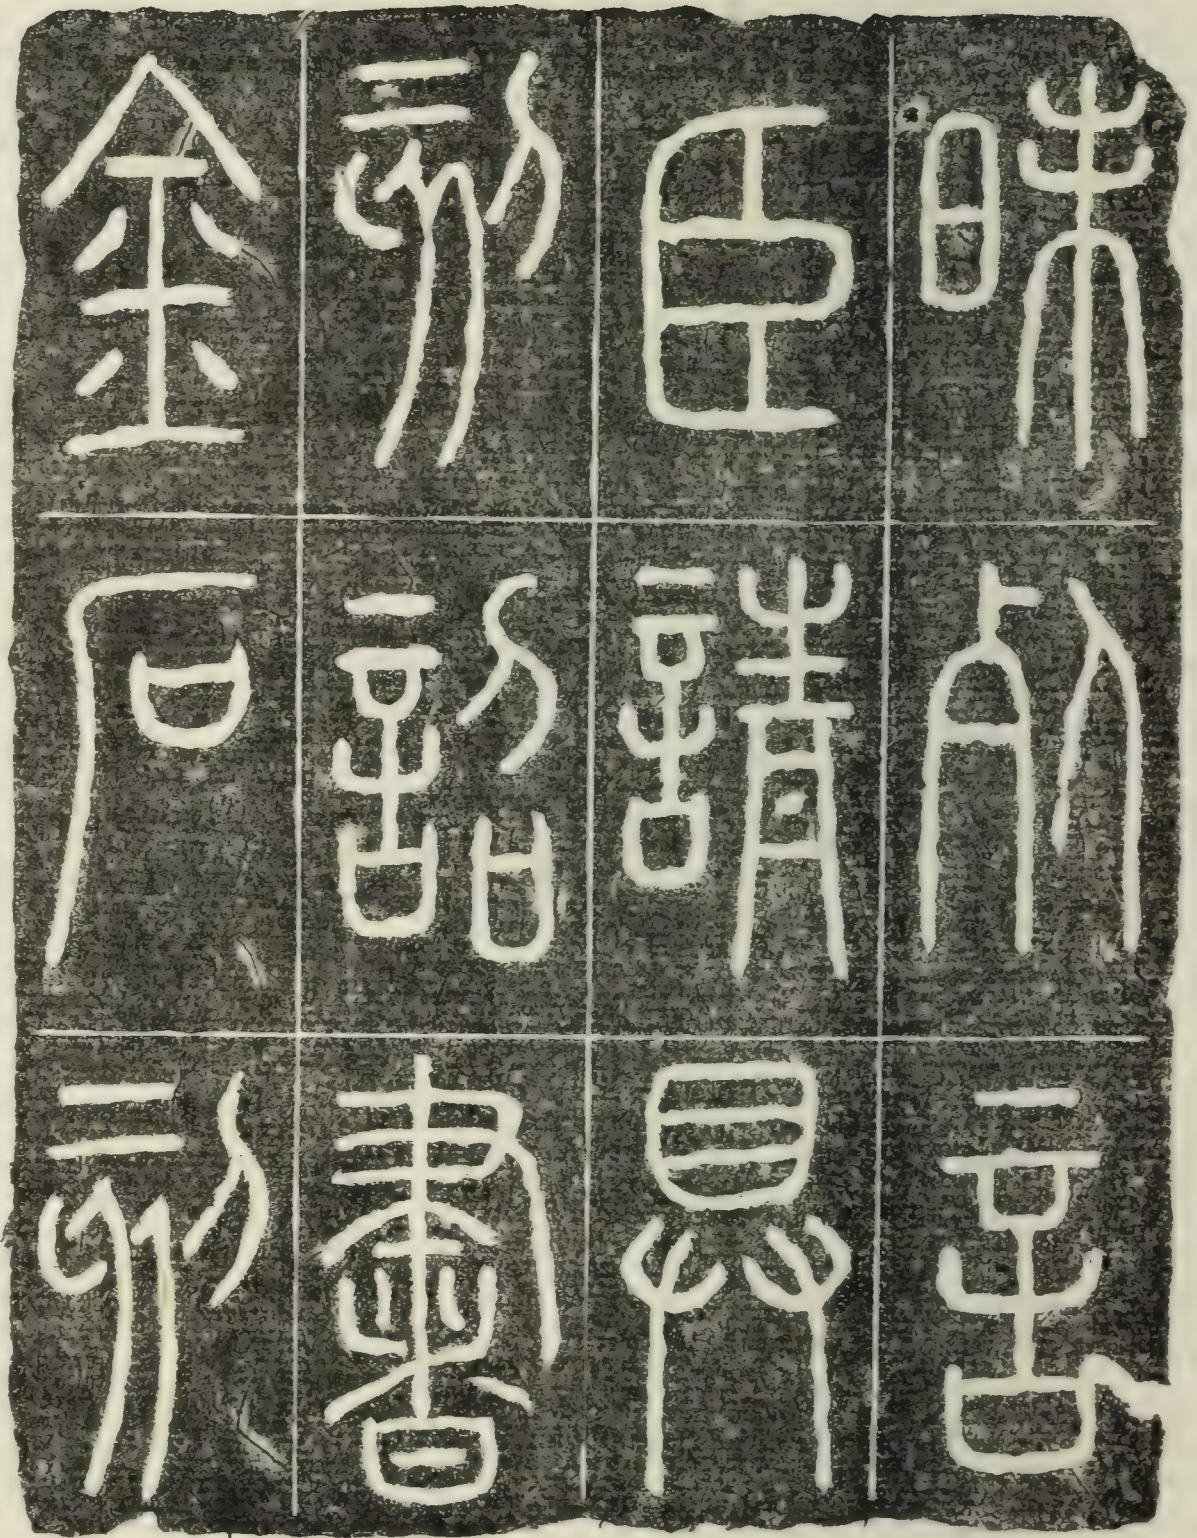 昧死言
臣請具
刻詔書
金石刻